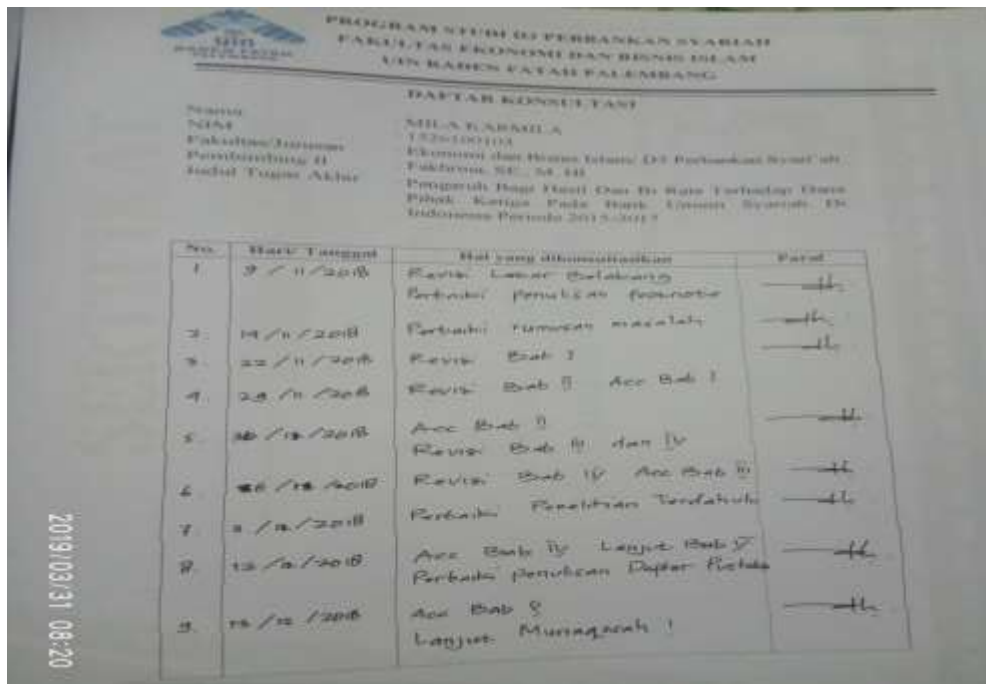 uin
RADEN FATAH
PALEMBANG
PROGRAM STUDI D3 PERBANKAN SYARIAH
FAKULTAS EKONOMI DAN BISNIS ISLAM
UIN RADEN FATAH PALEMBANG
DAFTAR KONSULTASI
Nama MILA KARMILA
NIM
Fakultas/Jurusan Ekonomi dan Bisnis Islam/ D3 Perbankan Syari'ah
Pembimbing II Fakhrina, SE., M.HI
Judul Tugas Akhir Pengaruh Bagi Hasil Dan Bi Rate Terhadap Dana
Pihak Ketiga Pada Bank Umum Syariah Di
Indonesia Periode 2015-2017
No. Hari/ Tanggal Hal yang dikonsultasikan Paraf
1 9 / 11 / 2018 Revisi Latar Belakang
Perbaiki penulisan
2. 19 / 11 / 2018 Perbaiki rumusan masalah
3. 22 / 11 / 2018 Revisi Bab I
4. 29 / 11 / 2018 Revisi Bab II Acc Bab I
5. / 2018 Acc Bab II
Revisi Bab III dan IV
6. / 2018 Revisi Bab IV Acc Bab III
7 / 2018 Perbaiki Penelitian Terdahulu
8. 12 / 12 / 2018 Acc Bab IV Lanjut Bab V
Perbaiki penulisan Daftar Pustaka
9. / 12 / 2018 Acc Bab V
Lanjut Munaqasah !
2019/03/31 08:20